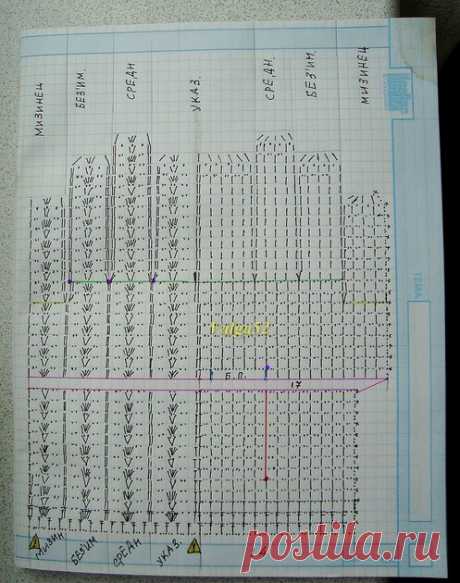 МИЗИНЕЦ
БЕЗ'ИМ.
СРЕДН
УКАЗ.
СРЕДН.
БЕЗ'ИМ.
МИЗИНЕЦ
ТЕМА
Valga52
Б.П.
17
МИЗИН
БЕЗ'ИМ
СРЕДН
УКАЗ.
postila.ru